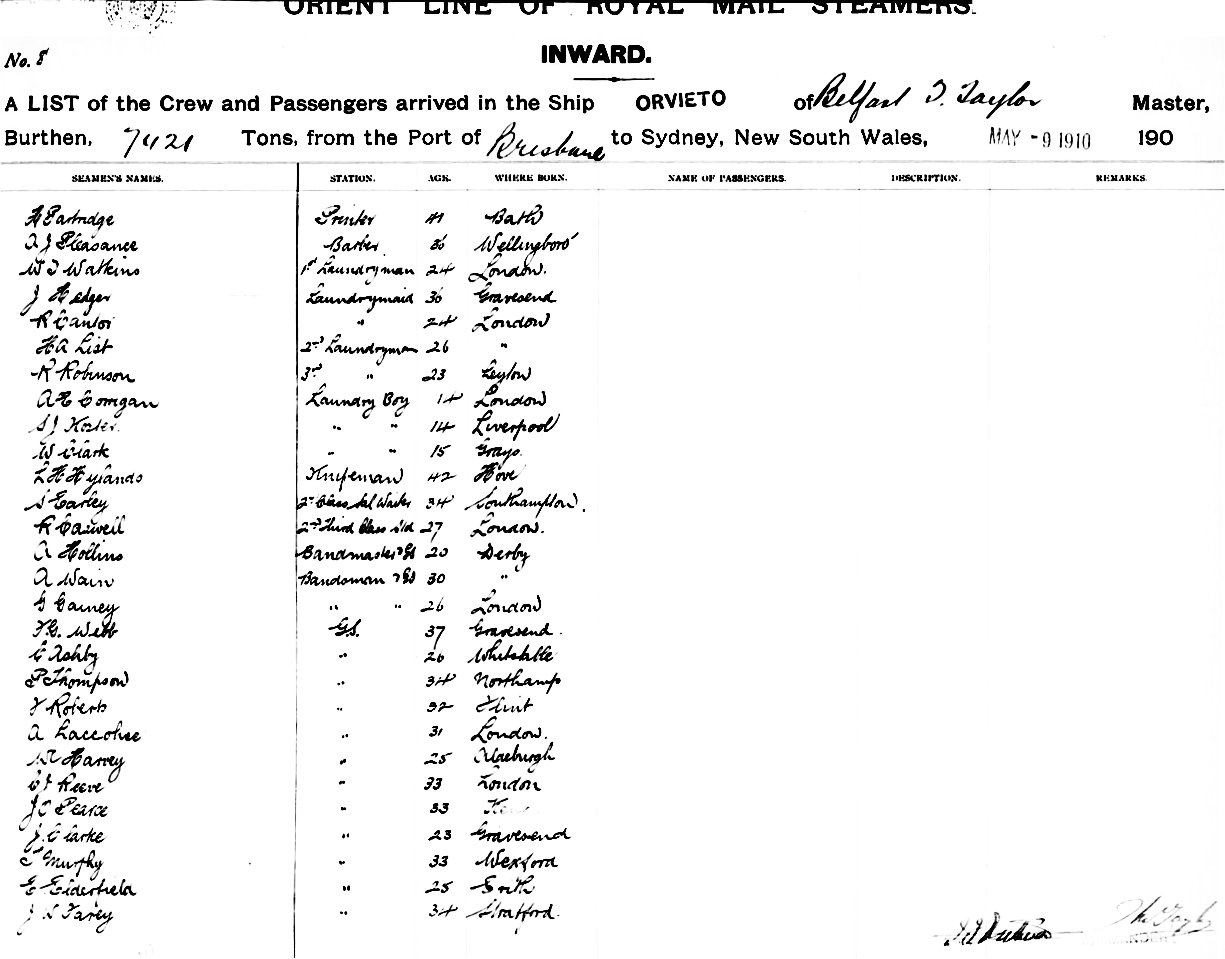 ORIENT LINE OF ROYAL MAIL STEAMERS.
No. 8
INWARD.
A LIST of the Crew and Passengers arrived in the Ship ORVIETO of Belfast T. Taylor Master,
Burthen, 7421 Tons, from the Port of Brisbane to Sydney, New South Wales, MAY -9 1910 190
SEAMEN'S NAMES. STATION. AGE. WHERE BORN. NAME OF PASSENGERS. DESCRIPTION. REMARKS.
H Partridge Printer 41 Bath
A J Pleasance Barber 36 Wellingboro'
W T Watkins 1st Laundryman 24 London.
J Hedger Laundrymaid 36 Gravesend
R Cantor " 24 London
H A List 2nd Laundryman 26 "
R Robinson 3rd " 23 Leyton
A E Corrigan Laundry Boy 14 London
S J Koster. " " 14 Liverpool
W Clark " " 15 Grays.
L H Hylands Knifeman 42 Hove
S Earley 2nd Class Sal Waiter 34 Southampton.
R Caswell 2nd Third Class Std 27 London.
A Hollins Bandmaster & GS 20 Derby
A Wain Bandsman & GS 30 "
G Gainey " " 26 London
F. G. Webb GS. 37 Gravesend.
C Ashby " 26 Whitstable
P Thompson " 34 Northamp
F Roberts " 32 Flint
A Laccohee " 31 London.
W R Harvey " 25 Aldeburgh
C J Reeve " 33 London
J C Pearce " 33
J. Clarke " 23 Gravesend
T Murphy " 33 Wexford
E Elderfield " 25 Erith
J S Farey " 34 Stratford.